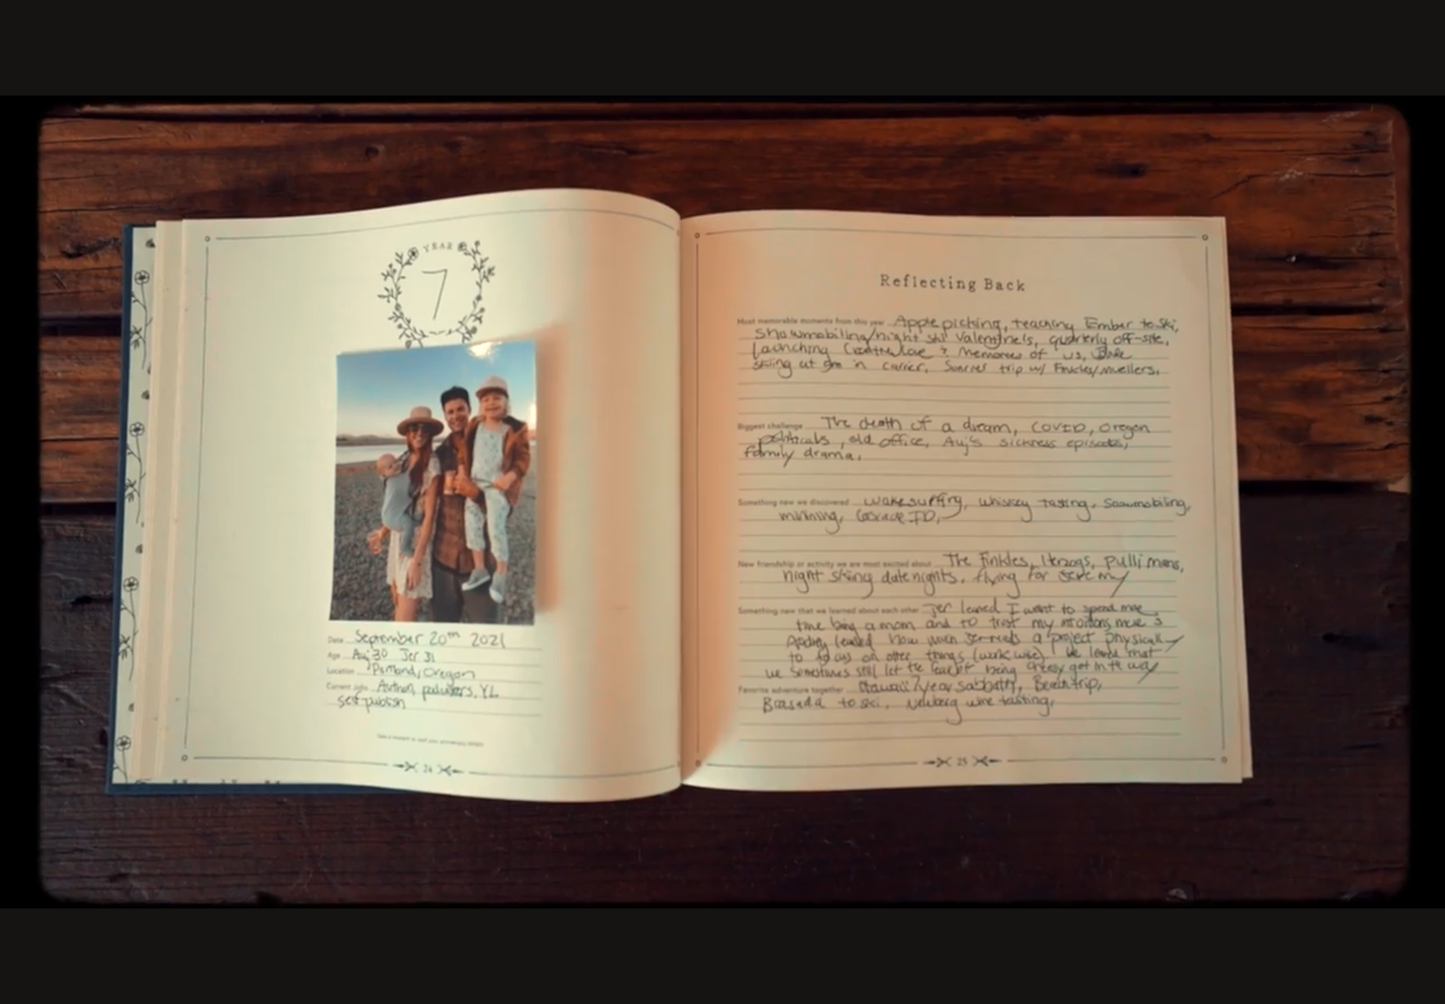 YEAR
7
Date September 20th 2021
Age Auj 30 Jer 31
Location Portland, Oregon
Current jobs Author, podcasters, YL
self publish
24
Reflecting Back
Most memorable moments from this year Apple picking, teaching Ember to ski,
Snowmobiling/night ski Valentine's, quarterly off-site,
launching & Memories of us,
skiing at in carrier, Sunriver trip w/ Finkles/Muellers,
Biggest challenge The death of a dream, COVID, Oregon
politicals, old office, Auj's sickness episodes,
family drama,
Something new we discovered wakesurfing, whiskey tasting, Snowmobiling,
Cascade ID,
New friendship or activity we are most excited about The Finkles, Herzogs, Pullimans,
night skiing date nights, flying for Jeremy
Something new that we learned about each other Jer leaned I want to spend more
time being a mom and to trust my intuitions more &
Audrey leaned how much Jer needs a project physically
to focus on other things (work wise). We leaned that
we sometimes still let the fear of being greedy get in the way
Favorite adventure together Hawaii 7/year sabbath, Beach trip,
Brasada to ski, Newberg wine tasting,
25